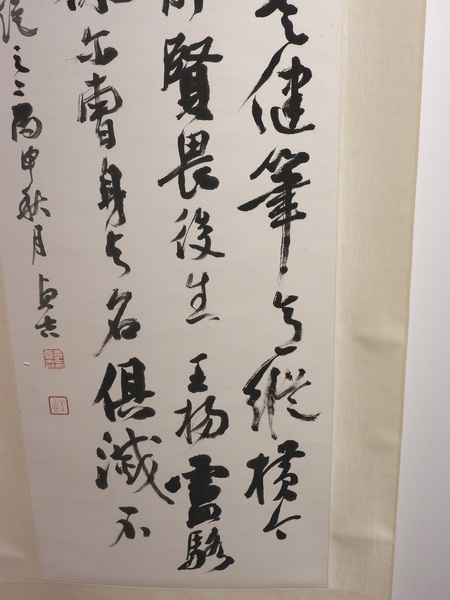 健筆意縱橫今
賢畏後生王楊盧駱
尔曹身与名俱滅不
之二丙申秋月